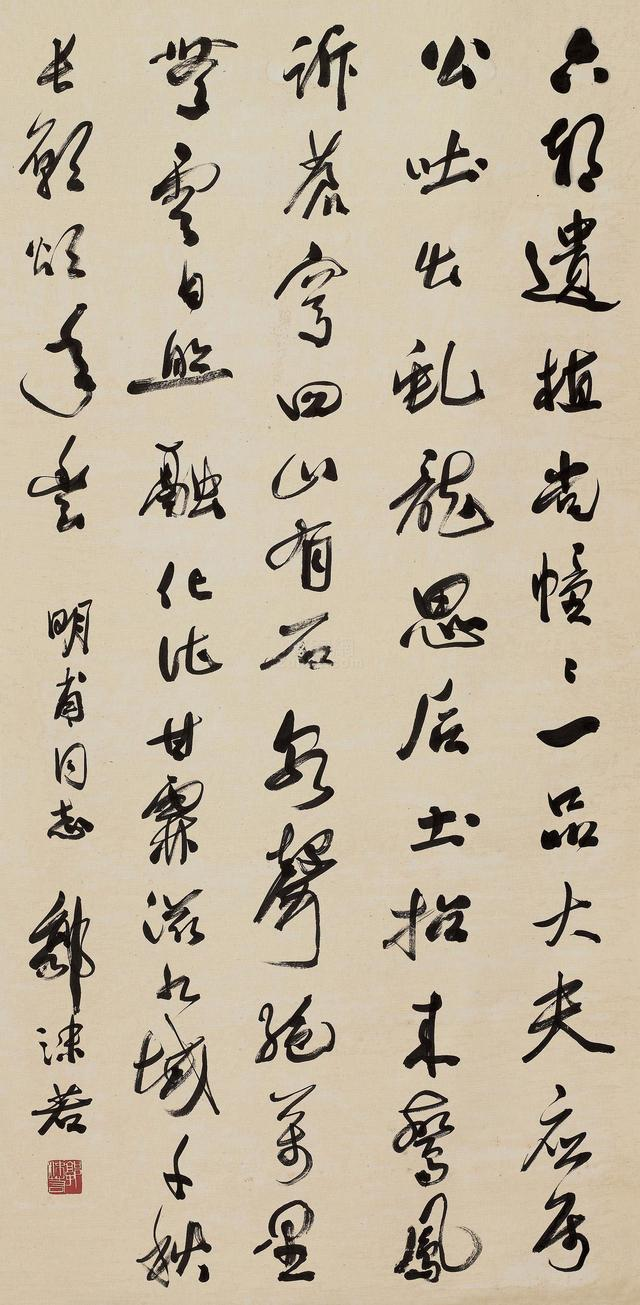 六朝遗植尚幢〻一品大夫应属
公吐出虬龙思后土招来鸾凤
诉苍穹四山有石泉声绝万里
无云日照融化作甘霖滋九域千秋
长愿颂年丰
明甫同志
郭沫若
郭沫若